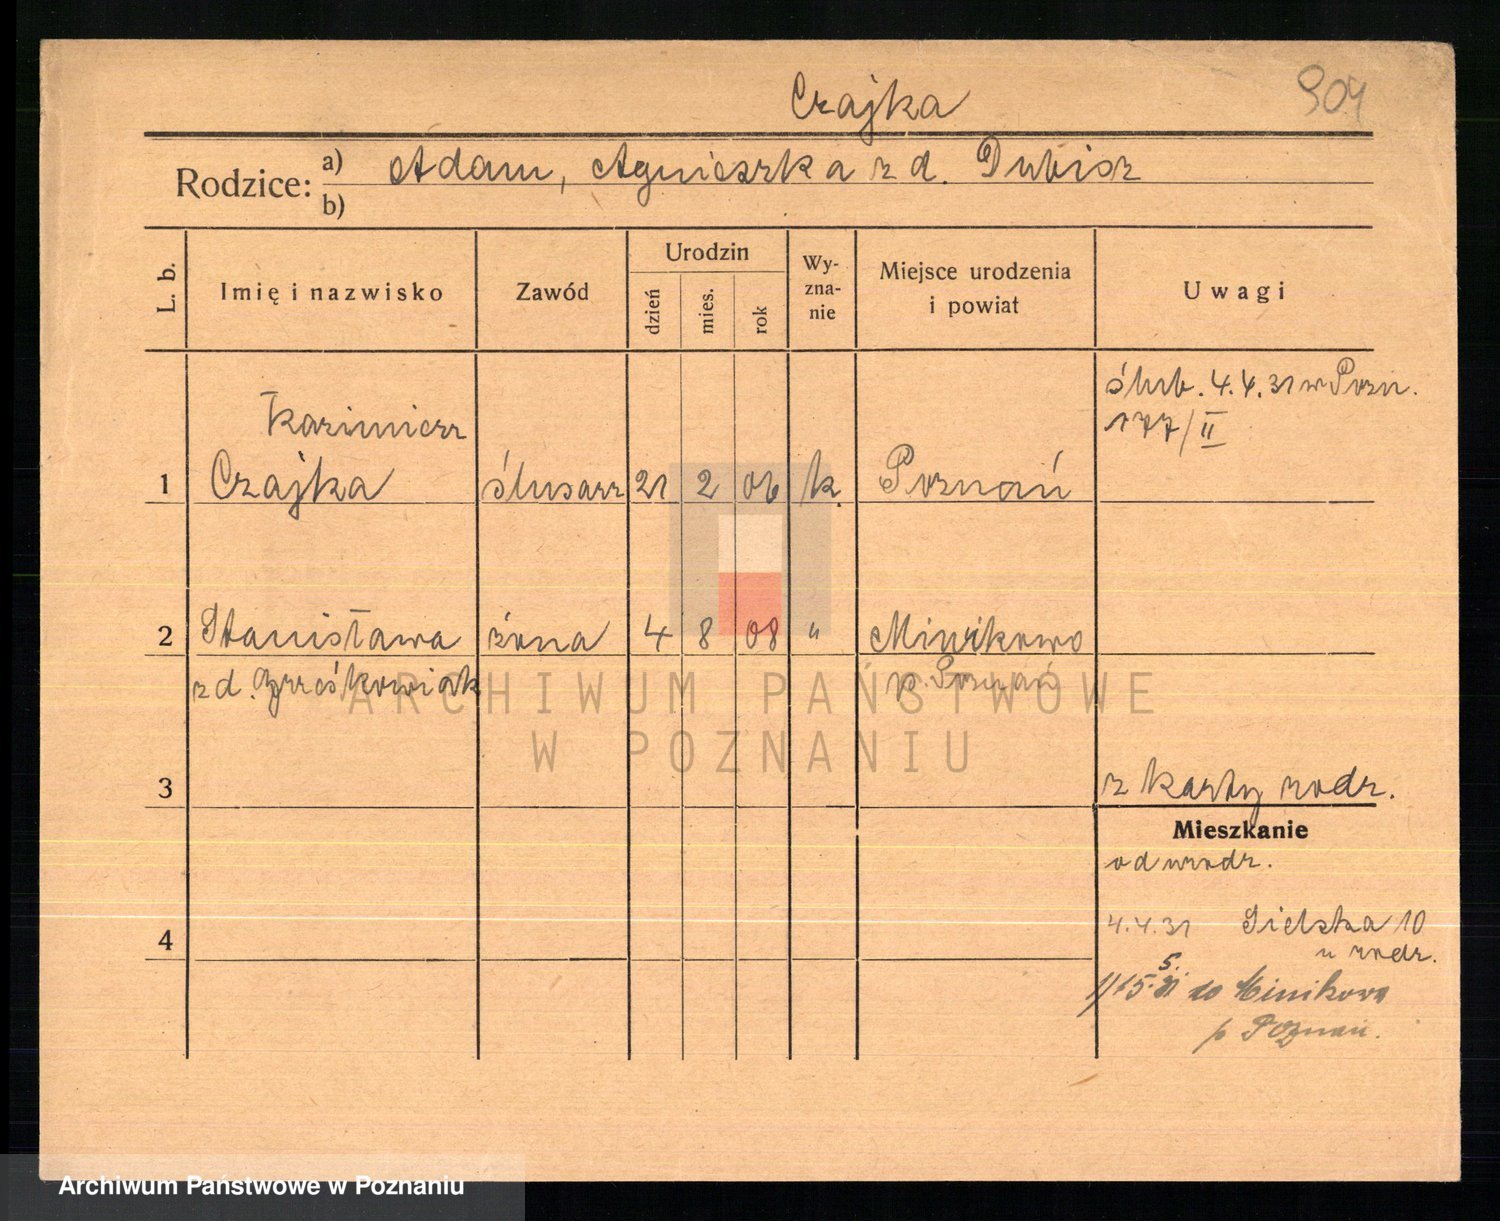 Czajka
904
Rodzice:
a) Adam, Agnieszka z d. Dubisz
b)
L. b.
Imię i nazwisko
Zawód
Urodzin
dzień
mies.
rok
Wy-
zna-
nie
Miejsce urodzenia
i powiat
Uwagi
ślub. 4.4.31 w Pozn.
177/II
Kazimierz
1 Czajka ślusarz 21 2 06 k. Poznań
2 Stanisława żona 4 8 08 " Minikowo
z d. p. Poznań
3
z karty rodz.
Mieszkanie
od urodz.
4
4.4.31 Sielska 10
u rodz.
15.5.31 do Minikowa
p Poznań.
ARCHIWUM PAŃSTWOWE
W POZNANIU
Archiwum Państwowe w Poznaniu